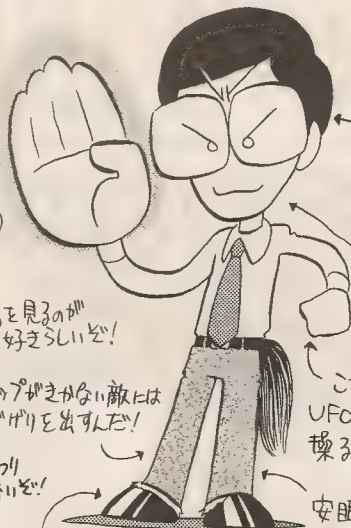 を見るのが
好きらしいぞ!
プがきかない敵には
げりを出すんだ!
いぞ!
UFO
操る
安眠